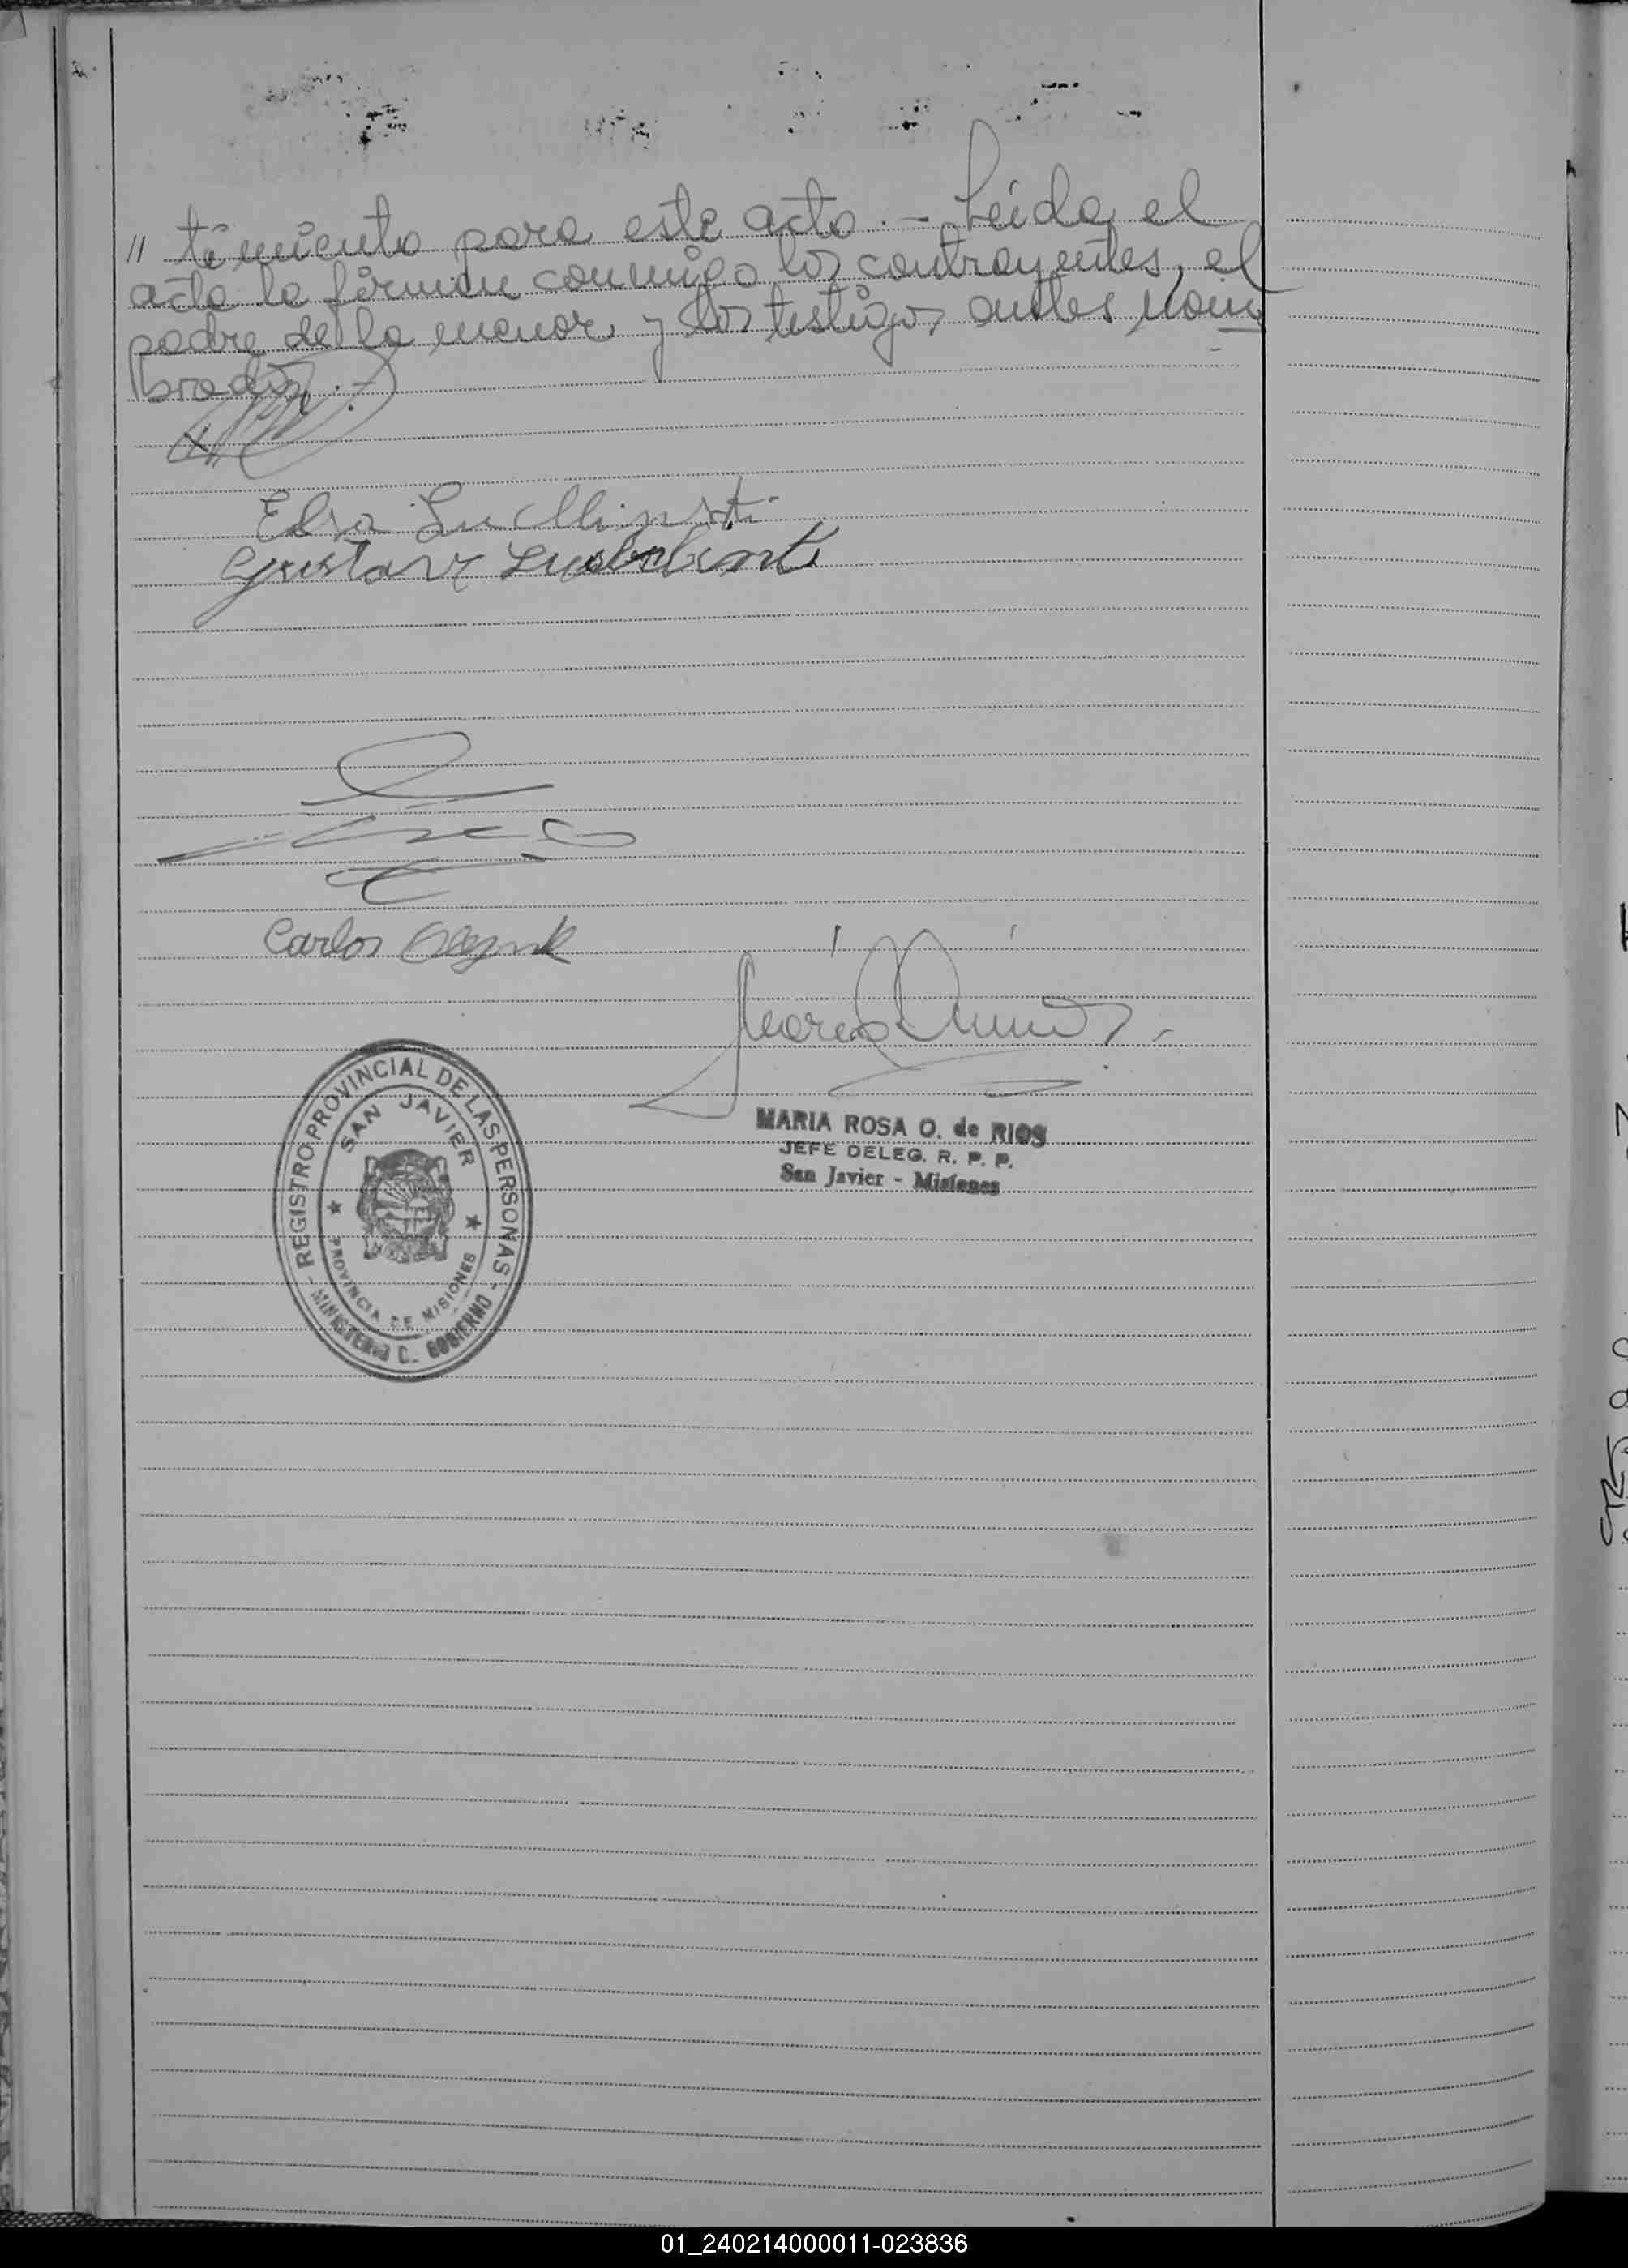 // timiento para este acto.- Leida el
acta la firman conmigo los contrayentes, el
padre de la menor y los testigos antes nom
brados.-
Elsa
Gustavo
Carlos
MARIA ROSA O. de RIOS
JEFE DELEG. R. P. P.
San Javier - Misiones
- REGISTRO PROVINCIAL DE LAS PERSONAS -
SAN JAVIER
PROVINCIA DE MISIONES
MINISTERIO D. GOBIERNO
01_240214000011-023836